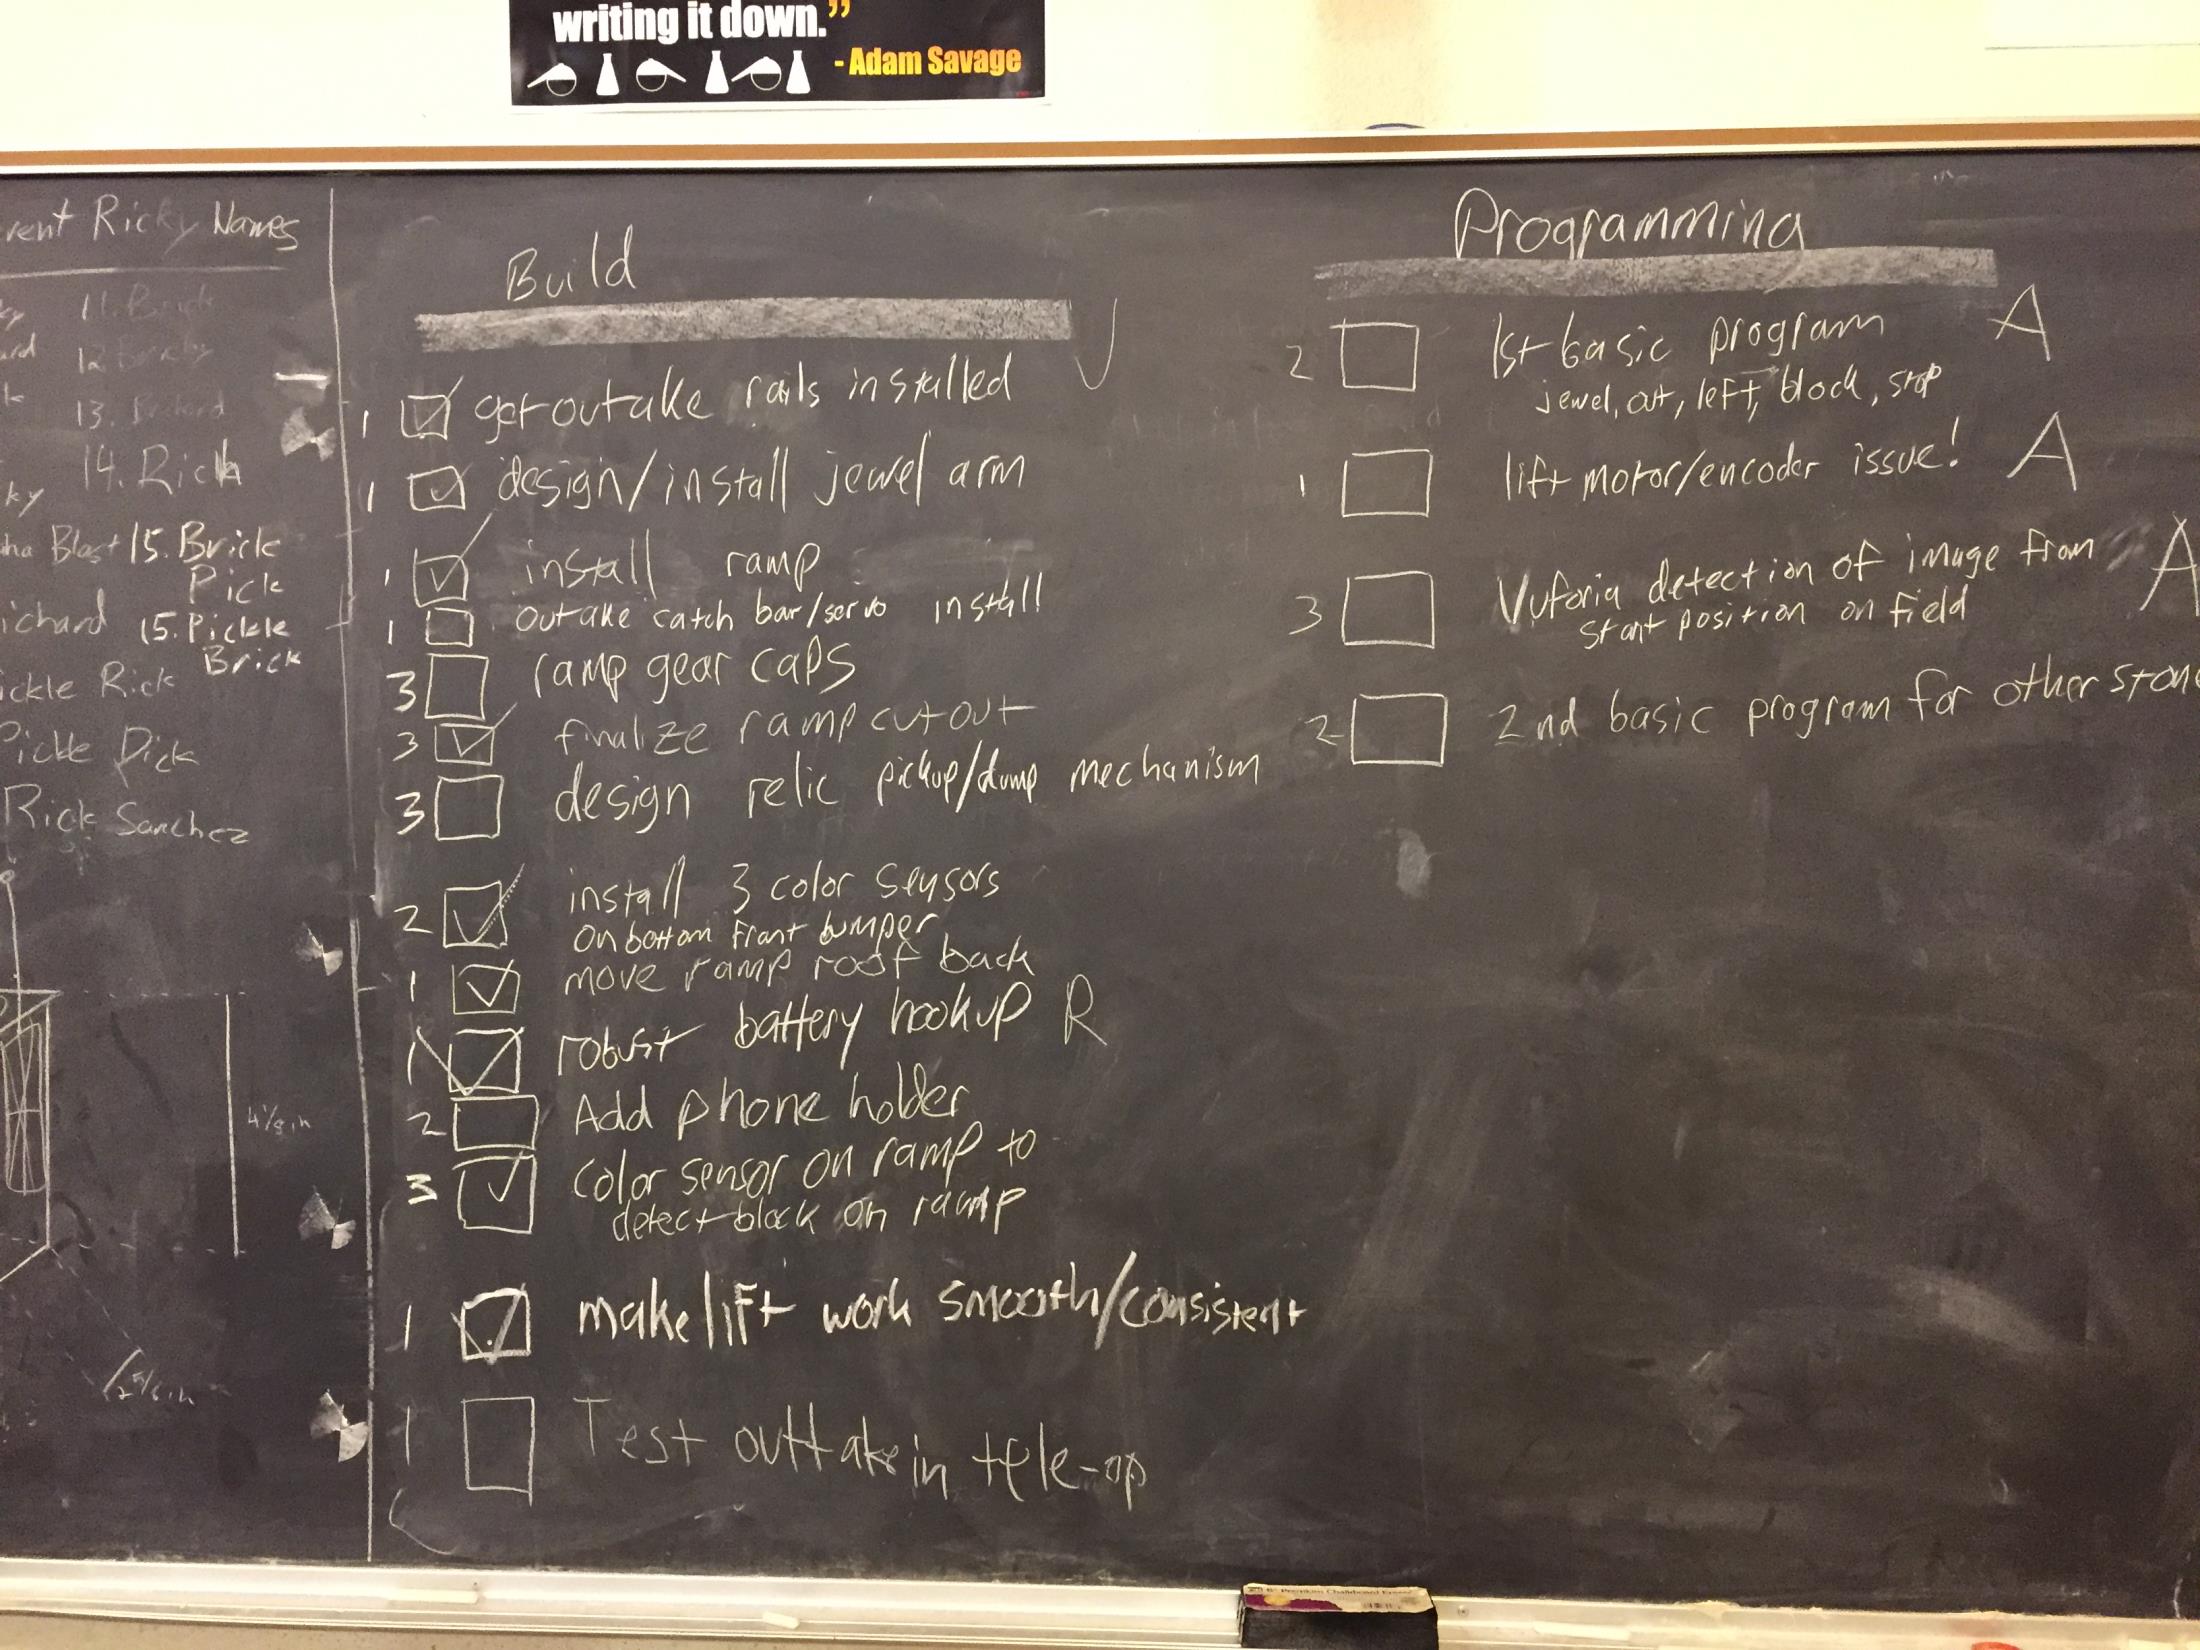 writing it down.”
- Adam Savage
rent Ricky Names
11. Brick
12 Bricky
13. Brickard
14. Rick
ky
Blast 15. Brick
Pick
ichard 15. Pickle
Brick
ickle Rick
Pickle Dick
Rick Sanchez
4 1/8 in
Build
J
1 get outake rails installed
1 design/install jewel arm
1 install ramp
1 outake catch bar/servo install
3 ramp gear caps
3 finalize ramp cutout
3 design relic pickup/dump mechanism
2 install 3 color sensors
on bottom front bumper
1 move ramp roof back
1 robust battery hookup R
2 Add phone holder
3 Color sensor on ramp to
detect block on ramp
1 make lift work smooth/consistent
1 Test outtake in tele-op
Programming
2 1st basic program A
jewel, out, left, block, stop
1 lift motor/encoder issue! A
3 Vuforia detection of image from A
start position on field
2 2nd basic program for other stone